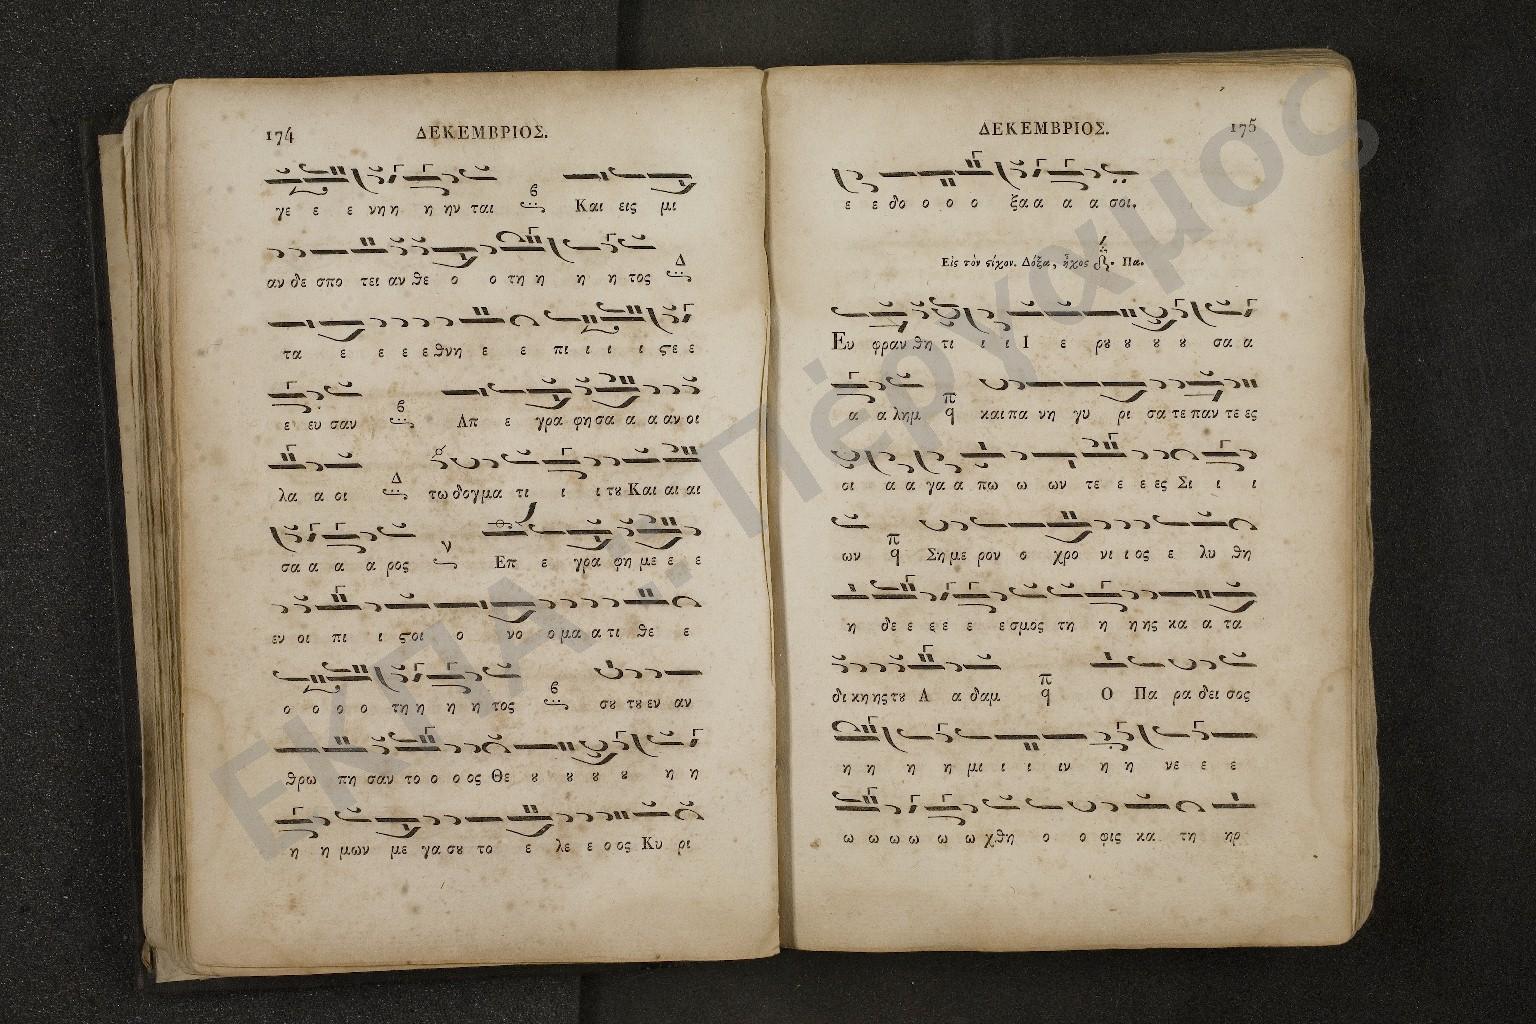 174
ΔΕΚΕΜΒΡΙΟΣ.
γε ε ε νη η η ην ται Και εις μι
αν δε σπο τει αν θε ο ο τη η η η τος
τα ε ε ε ε θνη ε ε πι ι ι ι ϛε ε
ε ευ σαν Απ ε γρα φη σα α α αν οι
λα α οι τω δογμα τι ι ι τȣ Και αι αι
σα α α α ρος Επ ε γρα φη με ε ε
εν οι πι ι ϛοι ο νο ο μα α τι θε ε
ο ο ο ο τη η η η τος σȣ τȣ εν αν
θρω πη σαν το ο ο ος Θε ȣ ȣ ȣ ȣ η η
η η μων με γα σȣ το ε λε ε ο ος Κυ ρι
ΔΕΚΕΜΒΡΙΟΣ.
175
ε ε δο ο ο ο ξα α α α σοι.
Εἰς τὸν ϛίχον. Δόξα, ἦχος Πα.
Ευ φραν θη τι ι ι Ι ε ρȣ ȣ ȣ ȣ σα α
α α λημ και πα νη γυ ρι σα τε παν τε ες
οι α α γα α πω ω ων τε ε ε ες Σι ι ι
ων Ση με ρον ο χρο νι ι ος ε λυ θη
η δε ε ε ε ε εσμος τη η ης κα α τα
δι κη ης τȣ Α α δαμ Ο Πα ρα δει σος
η η η η μι ι ι ιν η η νε ε ε
ω ω ω ω ω ω χθη ο ο φις κα τη ηρ
ΕΚΠΑ: Πέργαμος